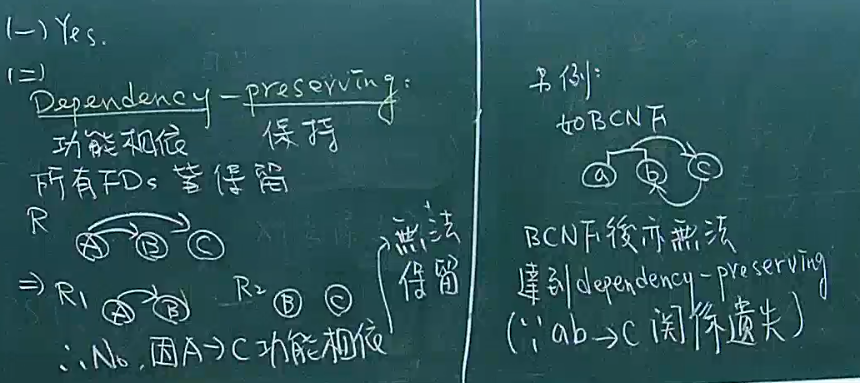 (一) Yes.
(二)
Dependency-preserving:
功能相依 保持
所有FDs 皆保留
R
A B C
⇒ R1 A B R2 B C
∴No, 因A→C功能相依
無法
保留
例:
如BCNF
a b c
BCNF後亦無法
達到dependency-preserving
(∵ab→c 関係遺失)